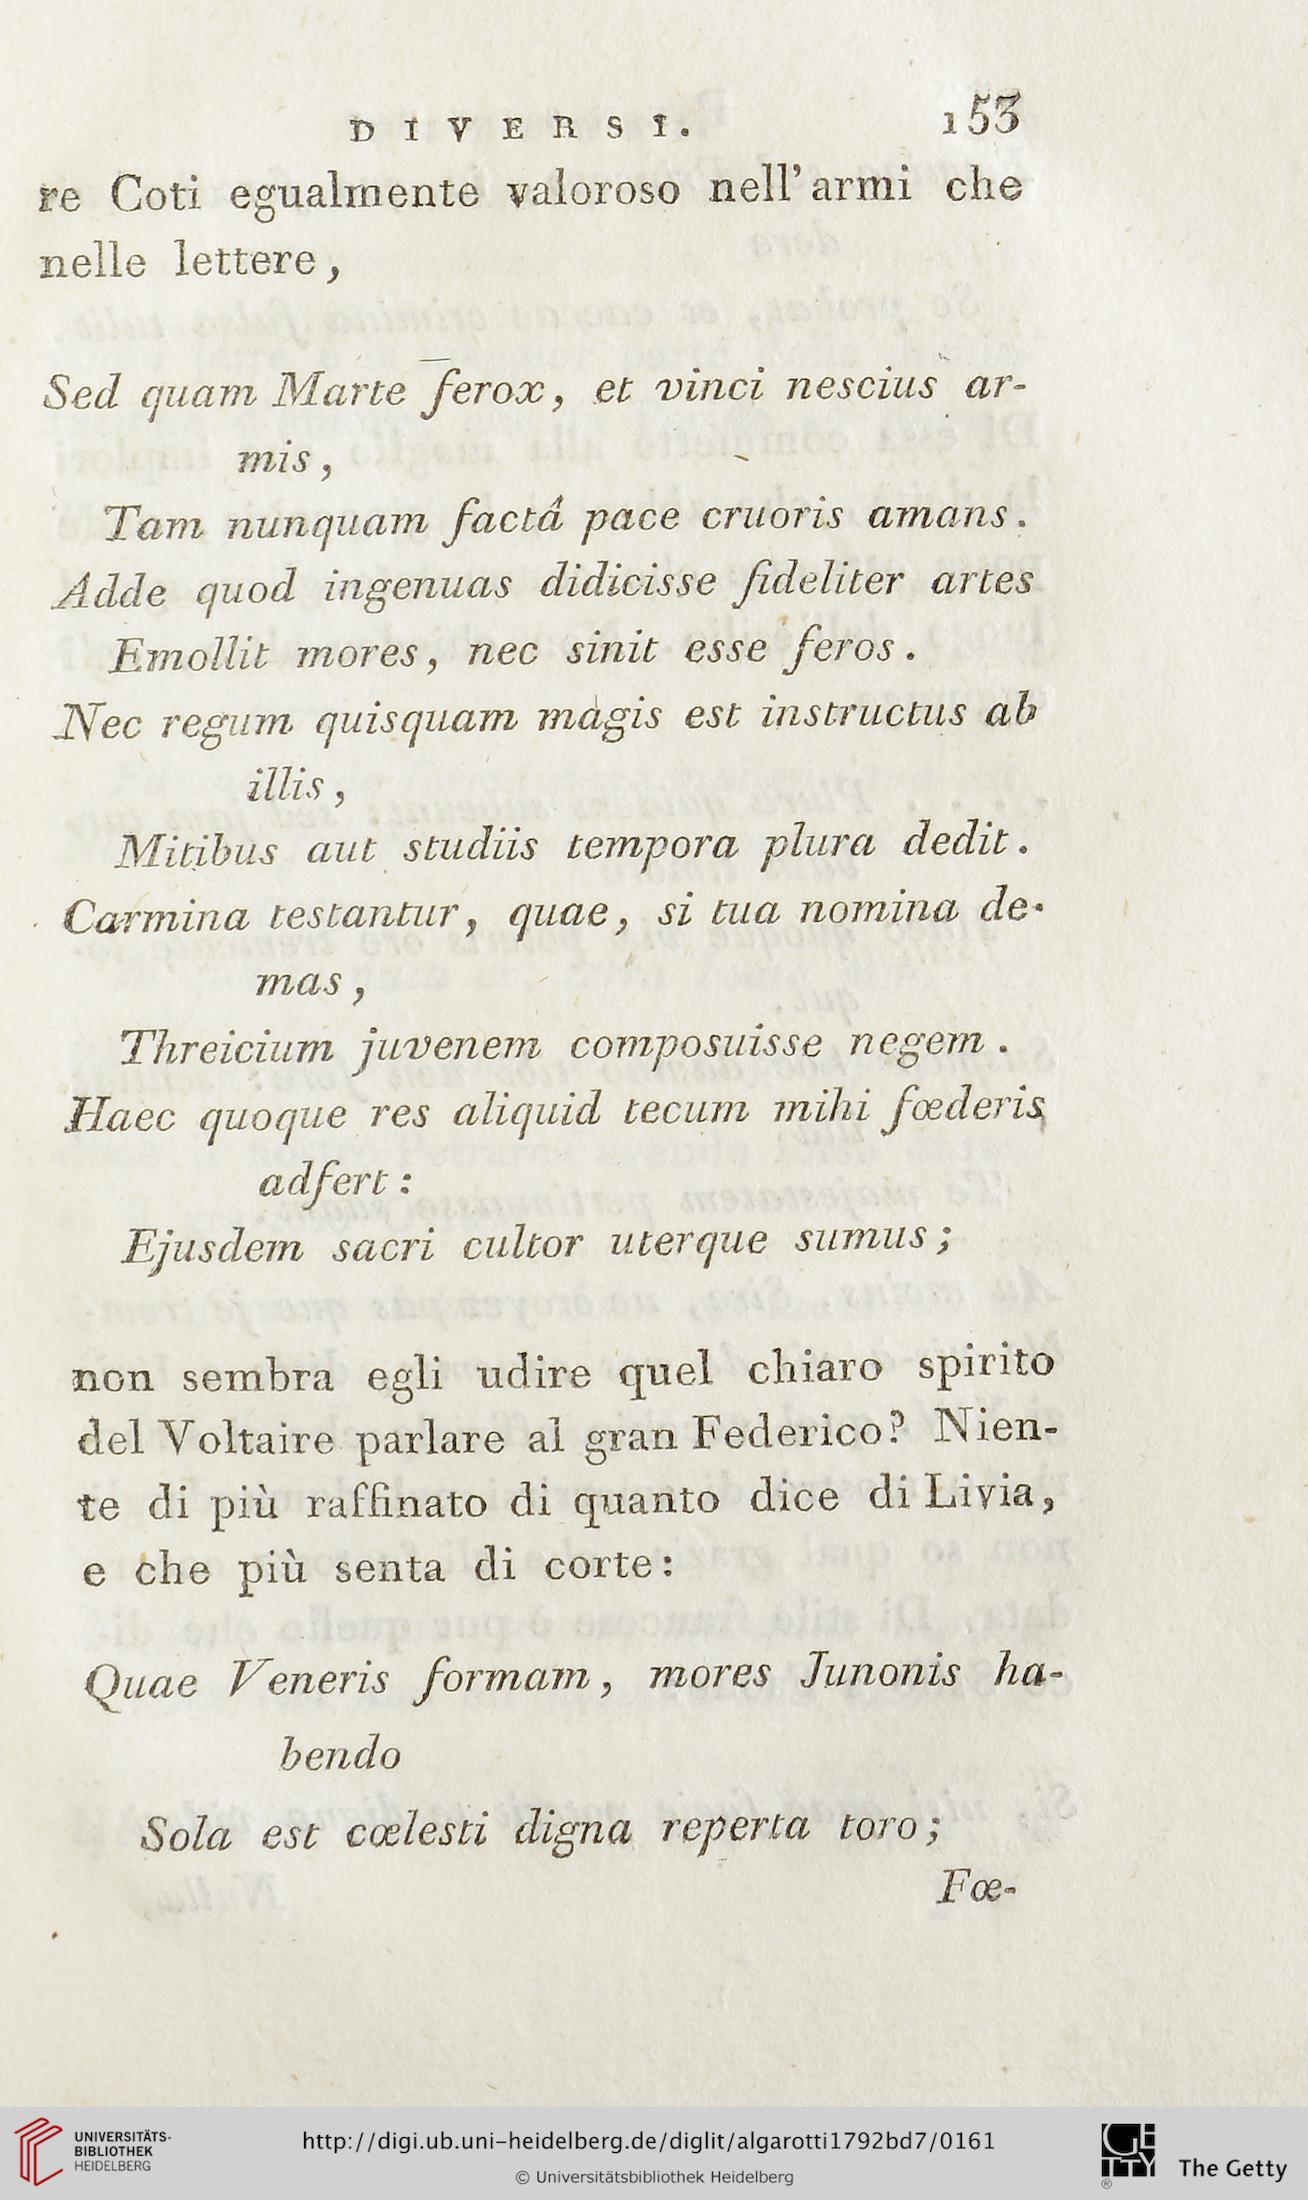 DIVERSI. 153
re Coti egualmente valoroso nell'armi che
nelle lettere,
Sed quam Marte ferox, et vinci nescius ar-
mis,
Tam nunquam factâ pace cruoris amans.
Adde quod ingenuas didicisse fideliter artes
Emollit mores, nec sinit esse feros.
Nec regum quisquam magis est instructus ab
illis,
Mitibus aut studiis tempora plura dedit.
Carmina testantur, quae, si tua nomina de-
mas,
Threicium juvenem composuisse negem.
Haec quoque res aliquid tecum mihi fœderis
adfert:
Ejusdem sacri cultor uterque sumus;
non sembra egli udire quel chiaro spirito
del Voltaire parlare al gran Federico? Nien-
te di più raffinato di quanto dice di Livia,
e che più senta di corte:
Quae Veneris formam, mores Junonis ha-
bendo
Sola est cœlesti digna reperta toro;
Fœ-
UNIVERSITÄTS-
BIBLIOTHEK
HEIDELBERG
http://digi.ub.uni-heidelberg.de/diglit/algarotti1792bd7/0161
© Universitätsbibliothek Heidelberg
GETTY
®
The Getty